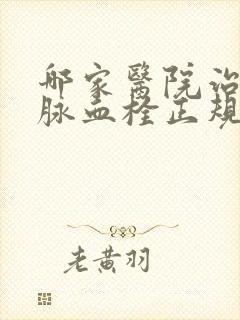 哪家醫院治
脉血栓正規
老黄羽